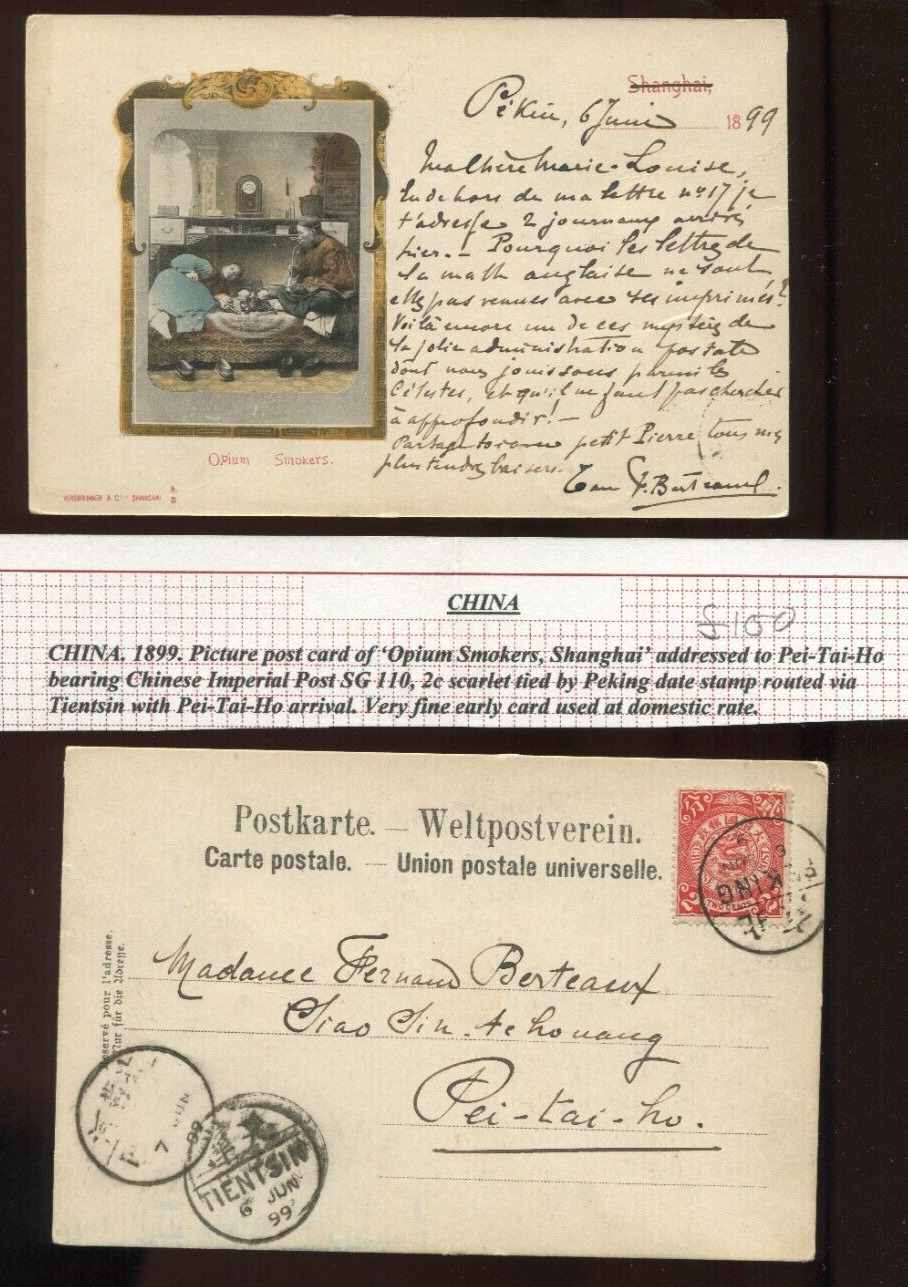 Shanghai,
Pékin, 6 Juin 1899
Ma Chère Marie-Louise,
En dehors de ma lettre nº 17 je
t'adresse 2 journaux arrivés
hier. - Pourquoi les lettres de
la malle anglaise ne sont
elles pas venues avec ses imprimés?
Voilà encore un de ces mystères de
la jolie administration postale
dont nous jouissons parmi les
Célestes, et qu'il ne faut pas chercher
à approfondir! -
Partage toi avec petit Pierre tous mes
plus tendres baisers.
Ton F. Berteaux
Opium Smokers.
HIRSBRUNNER & Co SHANGHAI
CHINA
£100
CHINA. 1899. Picture post card of 'Opium Smokers, Shanghai' addressed to Pei-Tai-Ho
bearing Chinese Imperial Post SG 110, 2c scarlet tied by Peking date stamp routed via
Tientsin with Pei-Tai-Ho arrival. Very fine early card used at domestic rate.
Postkarte. — Weltpostverein.
Carte postale. — Union postale universelle.
TWO CENTS
KING
Madame Fernand Berteaux
Siao Sin-tchouang
Pei-tai-ho.
servé pour l'adresse.
Nur für die Adresse.
7 JUN 99
TIENTSIN
6 JUN
99